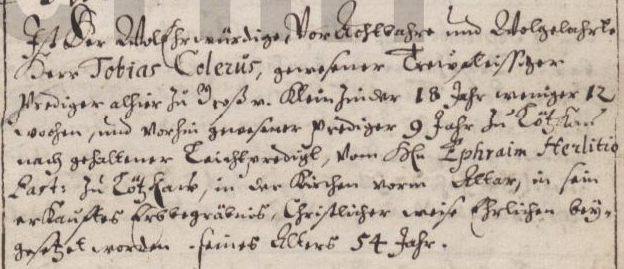 Ist Der WolEhrwürdige, Vor Achtbahre und Wolgelahrte
Herr Tobias Colerus, gewesener Trewfleissiger
Prediger alhier zu Groß u. Klein 18 Jahr weniger 12
wochen, und vorhin gewesener Prediger 9 Jahr zu
nach gehaltener Leichpredigt, vom Hn Ephraim Herlitio
Past: zu in der Kirchen vorm Altar, in sein
erkaufftes Erbbegräbnis, Christlicher weise Ehrlichen bey-
gesetzet worden. seines Alters 54 Jahr.